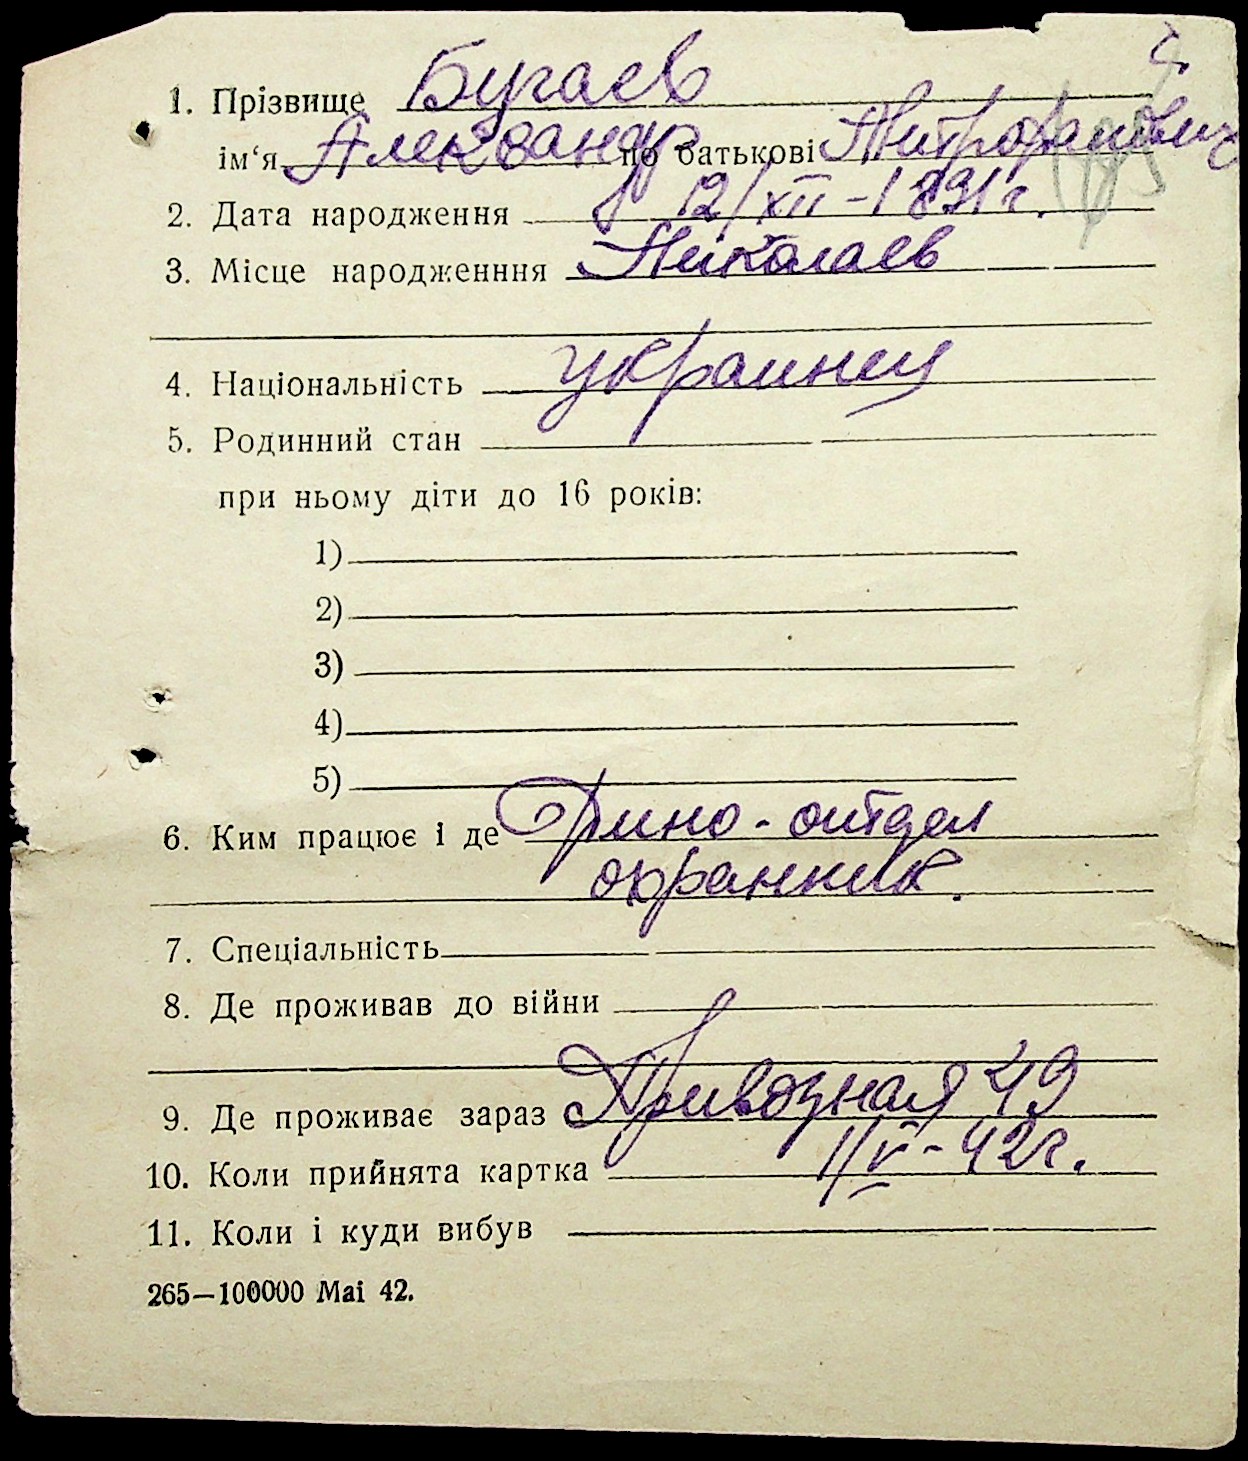 1. Прізвище Бугаев
ім‘я Александр по батькові Митрофанович
2. Дата народження 12/XII – 1891 г.
3. Місце народженння Николаев
4. Національність украинец
5. Родинний стан
при ньому діти до 16 років:
1)
2)
3)
4)
5)
6. Ким працює і де Фино - отдел
охранник.
7. Спеціальність
8. Де проживав до війни
9. Де проживає зараз Привозная 49
10. Коли прийнята картка 1/V - 42 г.
11. Коли і куди вибув
265—100000 Mai 42.